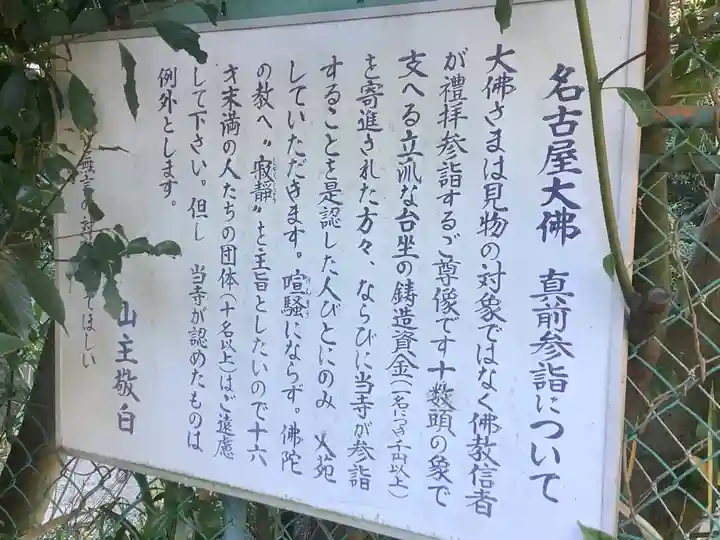 名古屋大佛 真前参詣について
大佛さまは見物の対象ではなく佛教信者
が禮拝参詣するご尊像です十数頭の象で
支へる立派な台坐の鋳造資金(一名につき千円以上)
を寄進された方々、ならびに当寺が参詣
することを是認した人びとにのみ 入苑
していただきます。喧騒にならず。佛陀
の教へ〝寂静〟を主旨としたいので十六
才末満の人たちの団体(十名以上)はご遠慮
して下さい。但し 当寺が認めたものは
例外とします。
てほしい
山主敬白